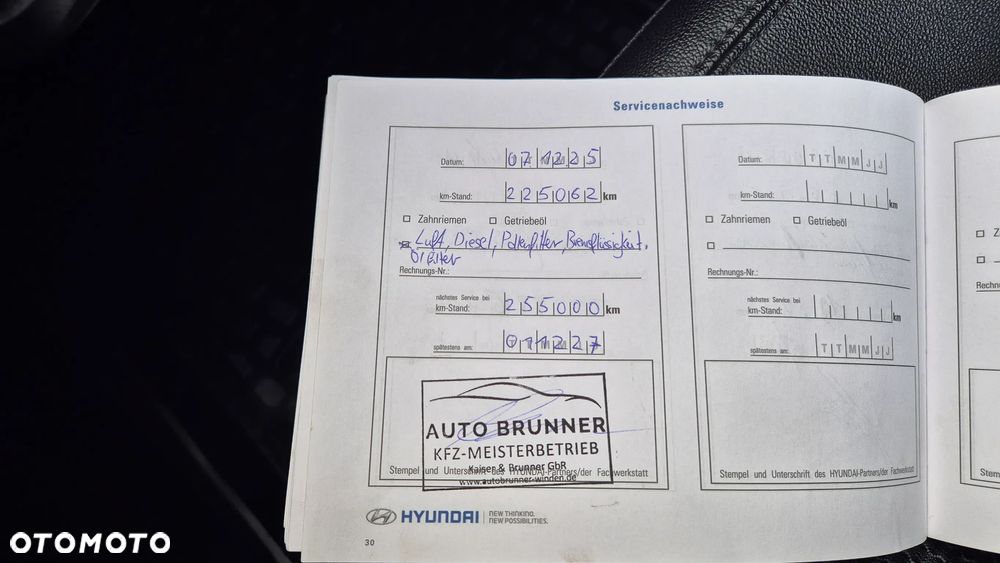 Servicenachweise
Datum: 07 12 25
km-Stand: 225062 km
Zahnriemen Getriebeöl
Luft, Diesel, Pollenfilter, Bremsflüssigkeit,
Ölfilter
Rechnungs-Nr.:
nächstes Service bei
km-Stand: 255000 km
spätestens am: 071227
AUTO BRUNNER
KFZ-MEISTERBETRIEB
Kaiser & Brunner GbR
Stempel und Unterschrift des HYUNDAI-Partners/der Fachwerkstatt
www.autobrunner-winden.de
Datum: T T M M J J
km-Stand: km
Zahnriemen Getriebeöl
Rechnungs-Nr.:
nächstes Service bei
km-Stand: km
spätestens am: T T M M J J
Stempel und Unterschrift des HYUNDAI-Partners/der Fachwerkstatt
HYUNDAI NEW THINKING.
NEW POSSIBILITIES.
30
Z
Rechn
Stem
OTOMOTO